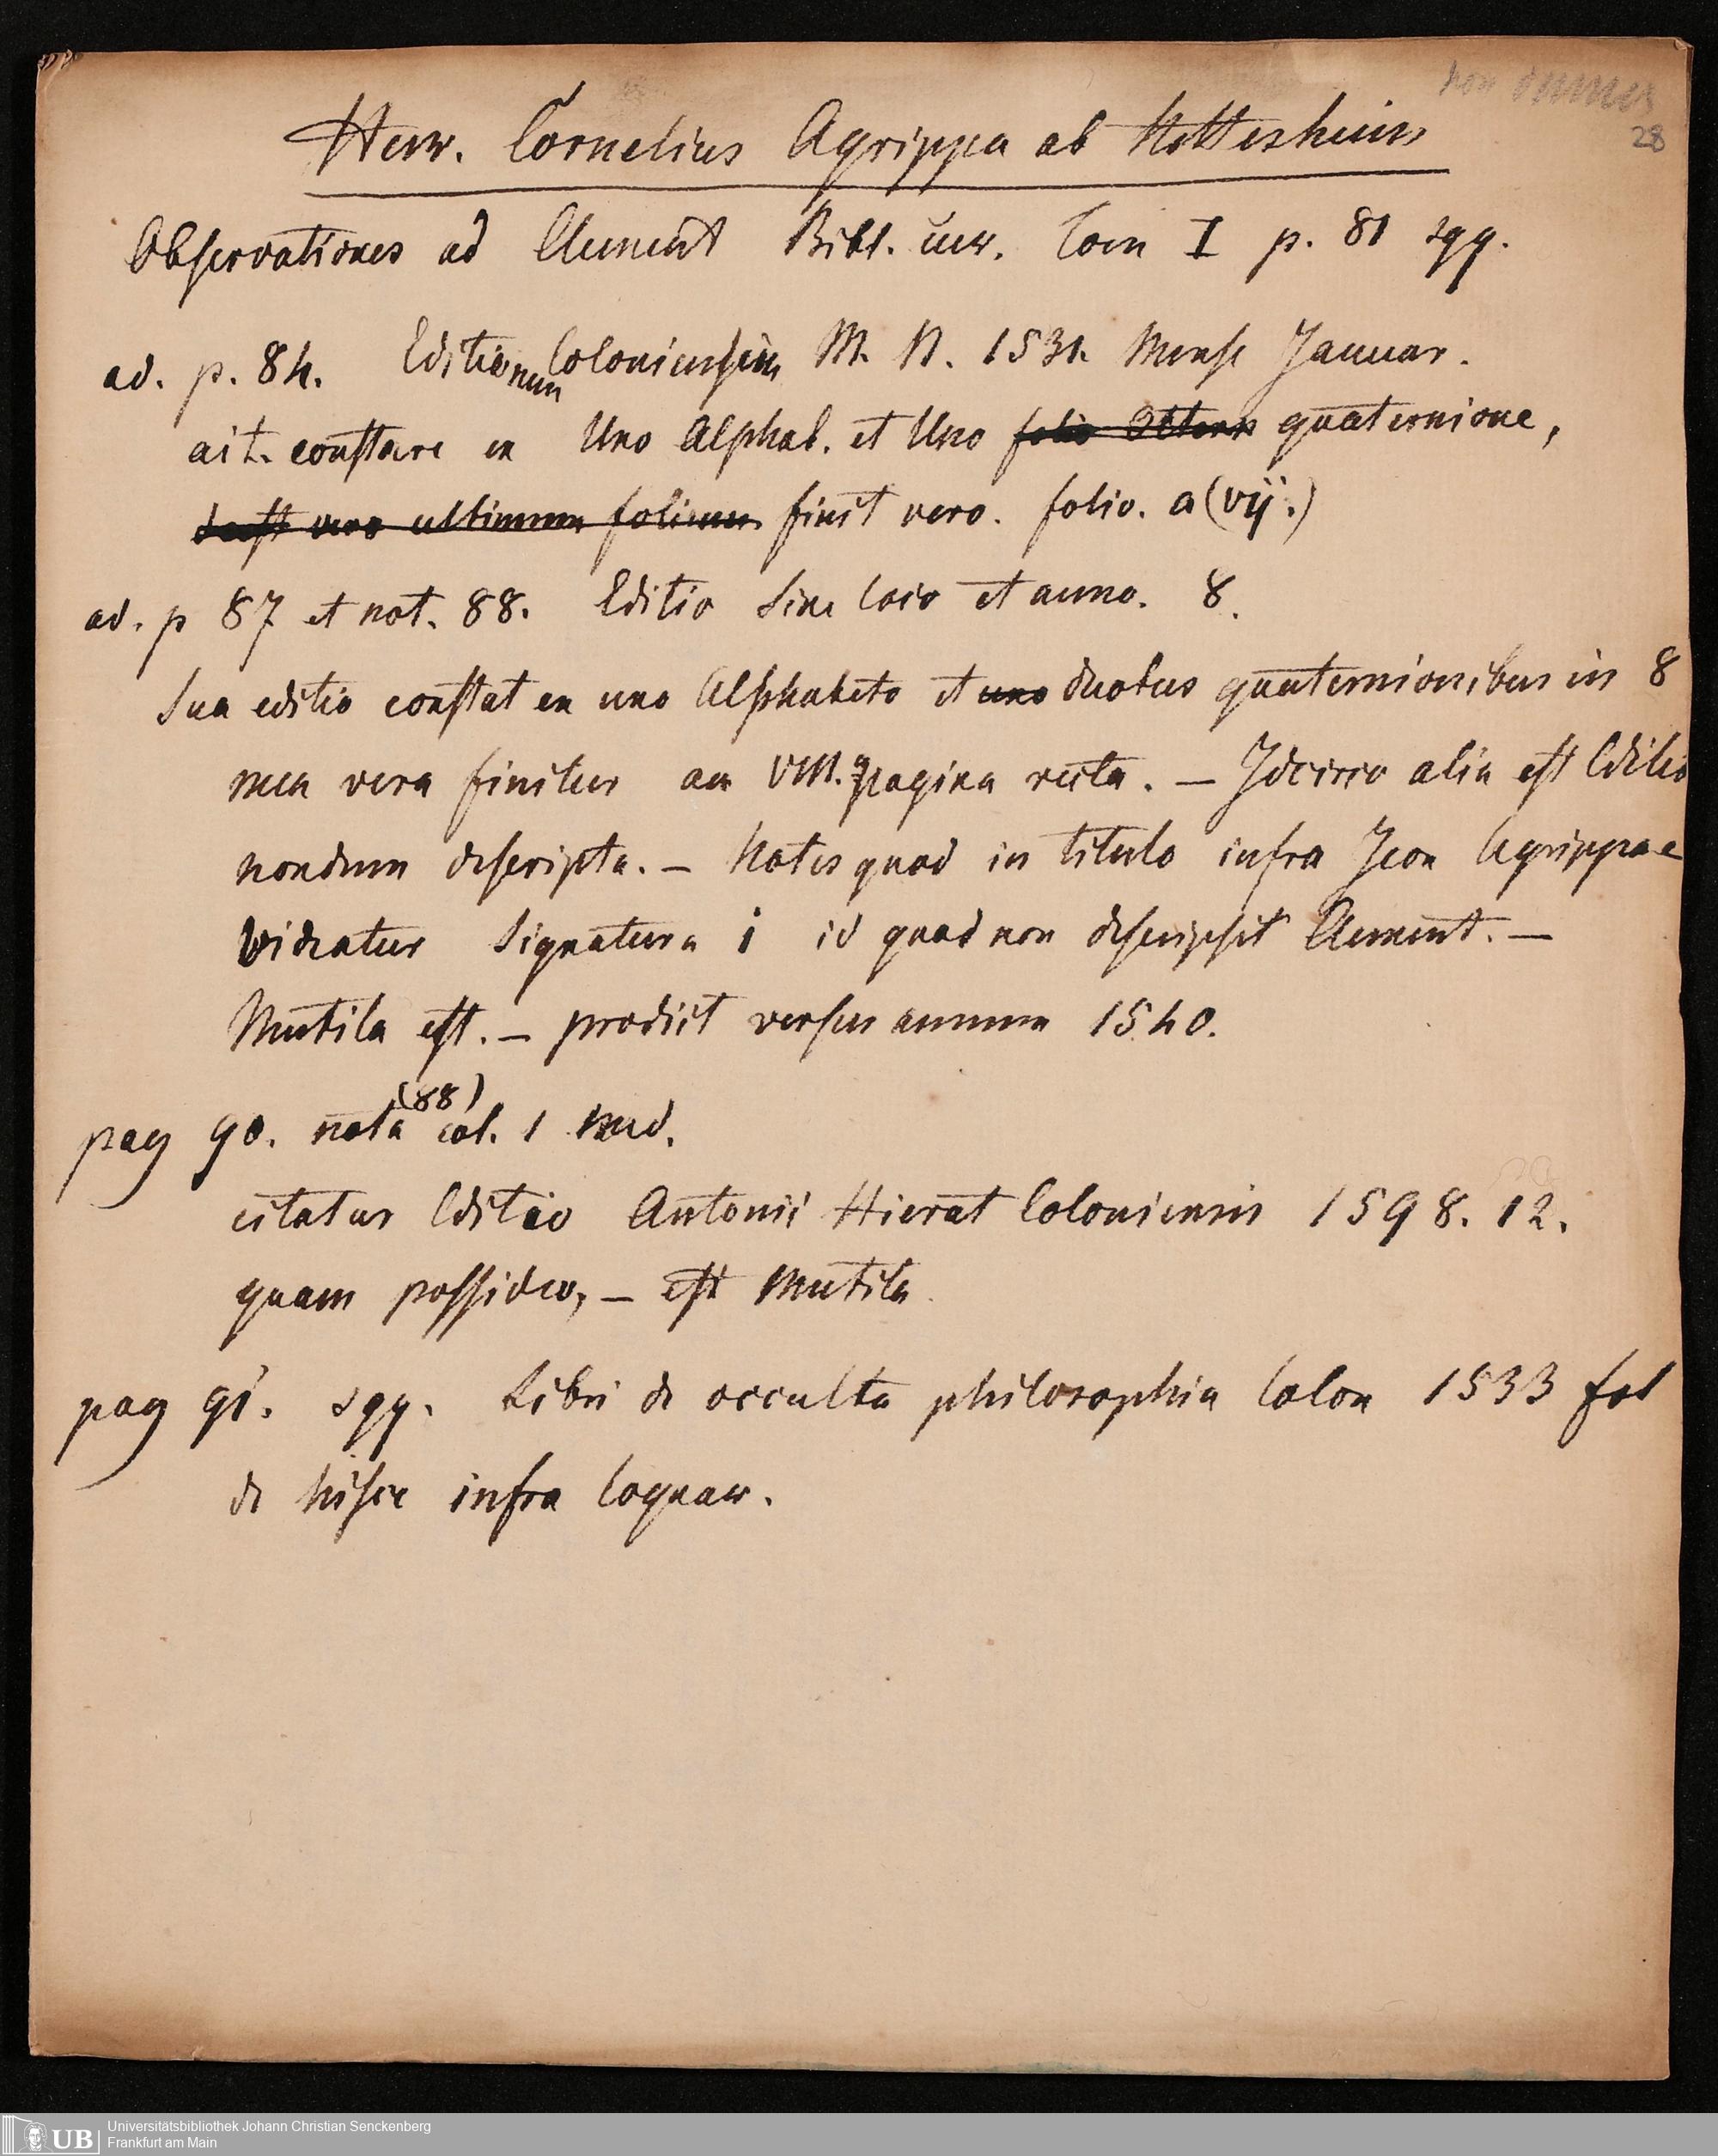 non omnes
28
Henr. Cornelius Agrippa ab Nettesheim
Observationes ad Clement Bibl. cur. Tom I p. 81 sqq.
ad. p. 84. Editionem Coloniensem M. N. 1531. Mense Januar.
ait. constare ex Uno Alphab. et Uno folio quaternione,
vero ultimum folium finit vero. folio. a (vij.)
ad. p 87 et not. 88. Editio Sine loco et anno. 8.
Sua editio constat ex uno Alphabeto et uno duobus quaternionibus in 8
mea vera finitur aa VIII. pagina recta. – Idcirco alia est Editio
nondum descripta. – Notes quod in titulo infra Icon Agrippae
Videatur Signatura i id quod non descripsit Clement. –
Mutila est. – prodiit versus annum 1540.
(88)
pag 90. nota col. 1 med.
citatur Editio Antonii Hierat Coloniensis 1598. 12.
quam possideo, – est Mutila.
pag 91. sqq. Libri de occulta philosophia Colon 1533 fol
de hisce infra loquar.
UB Universitätsbibliothek Johann Christian Senckenberg
Frankfurt am Main